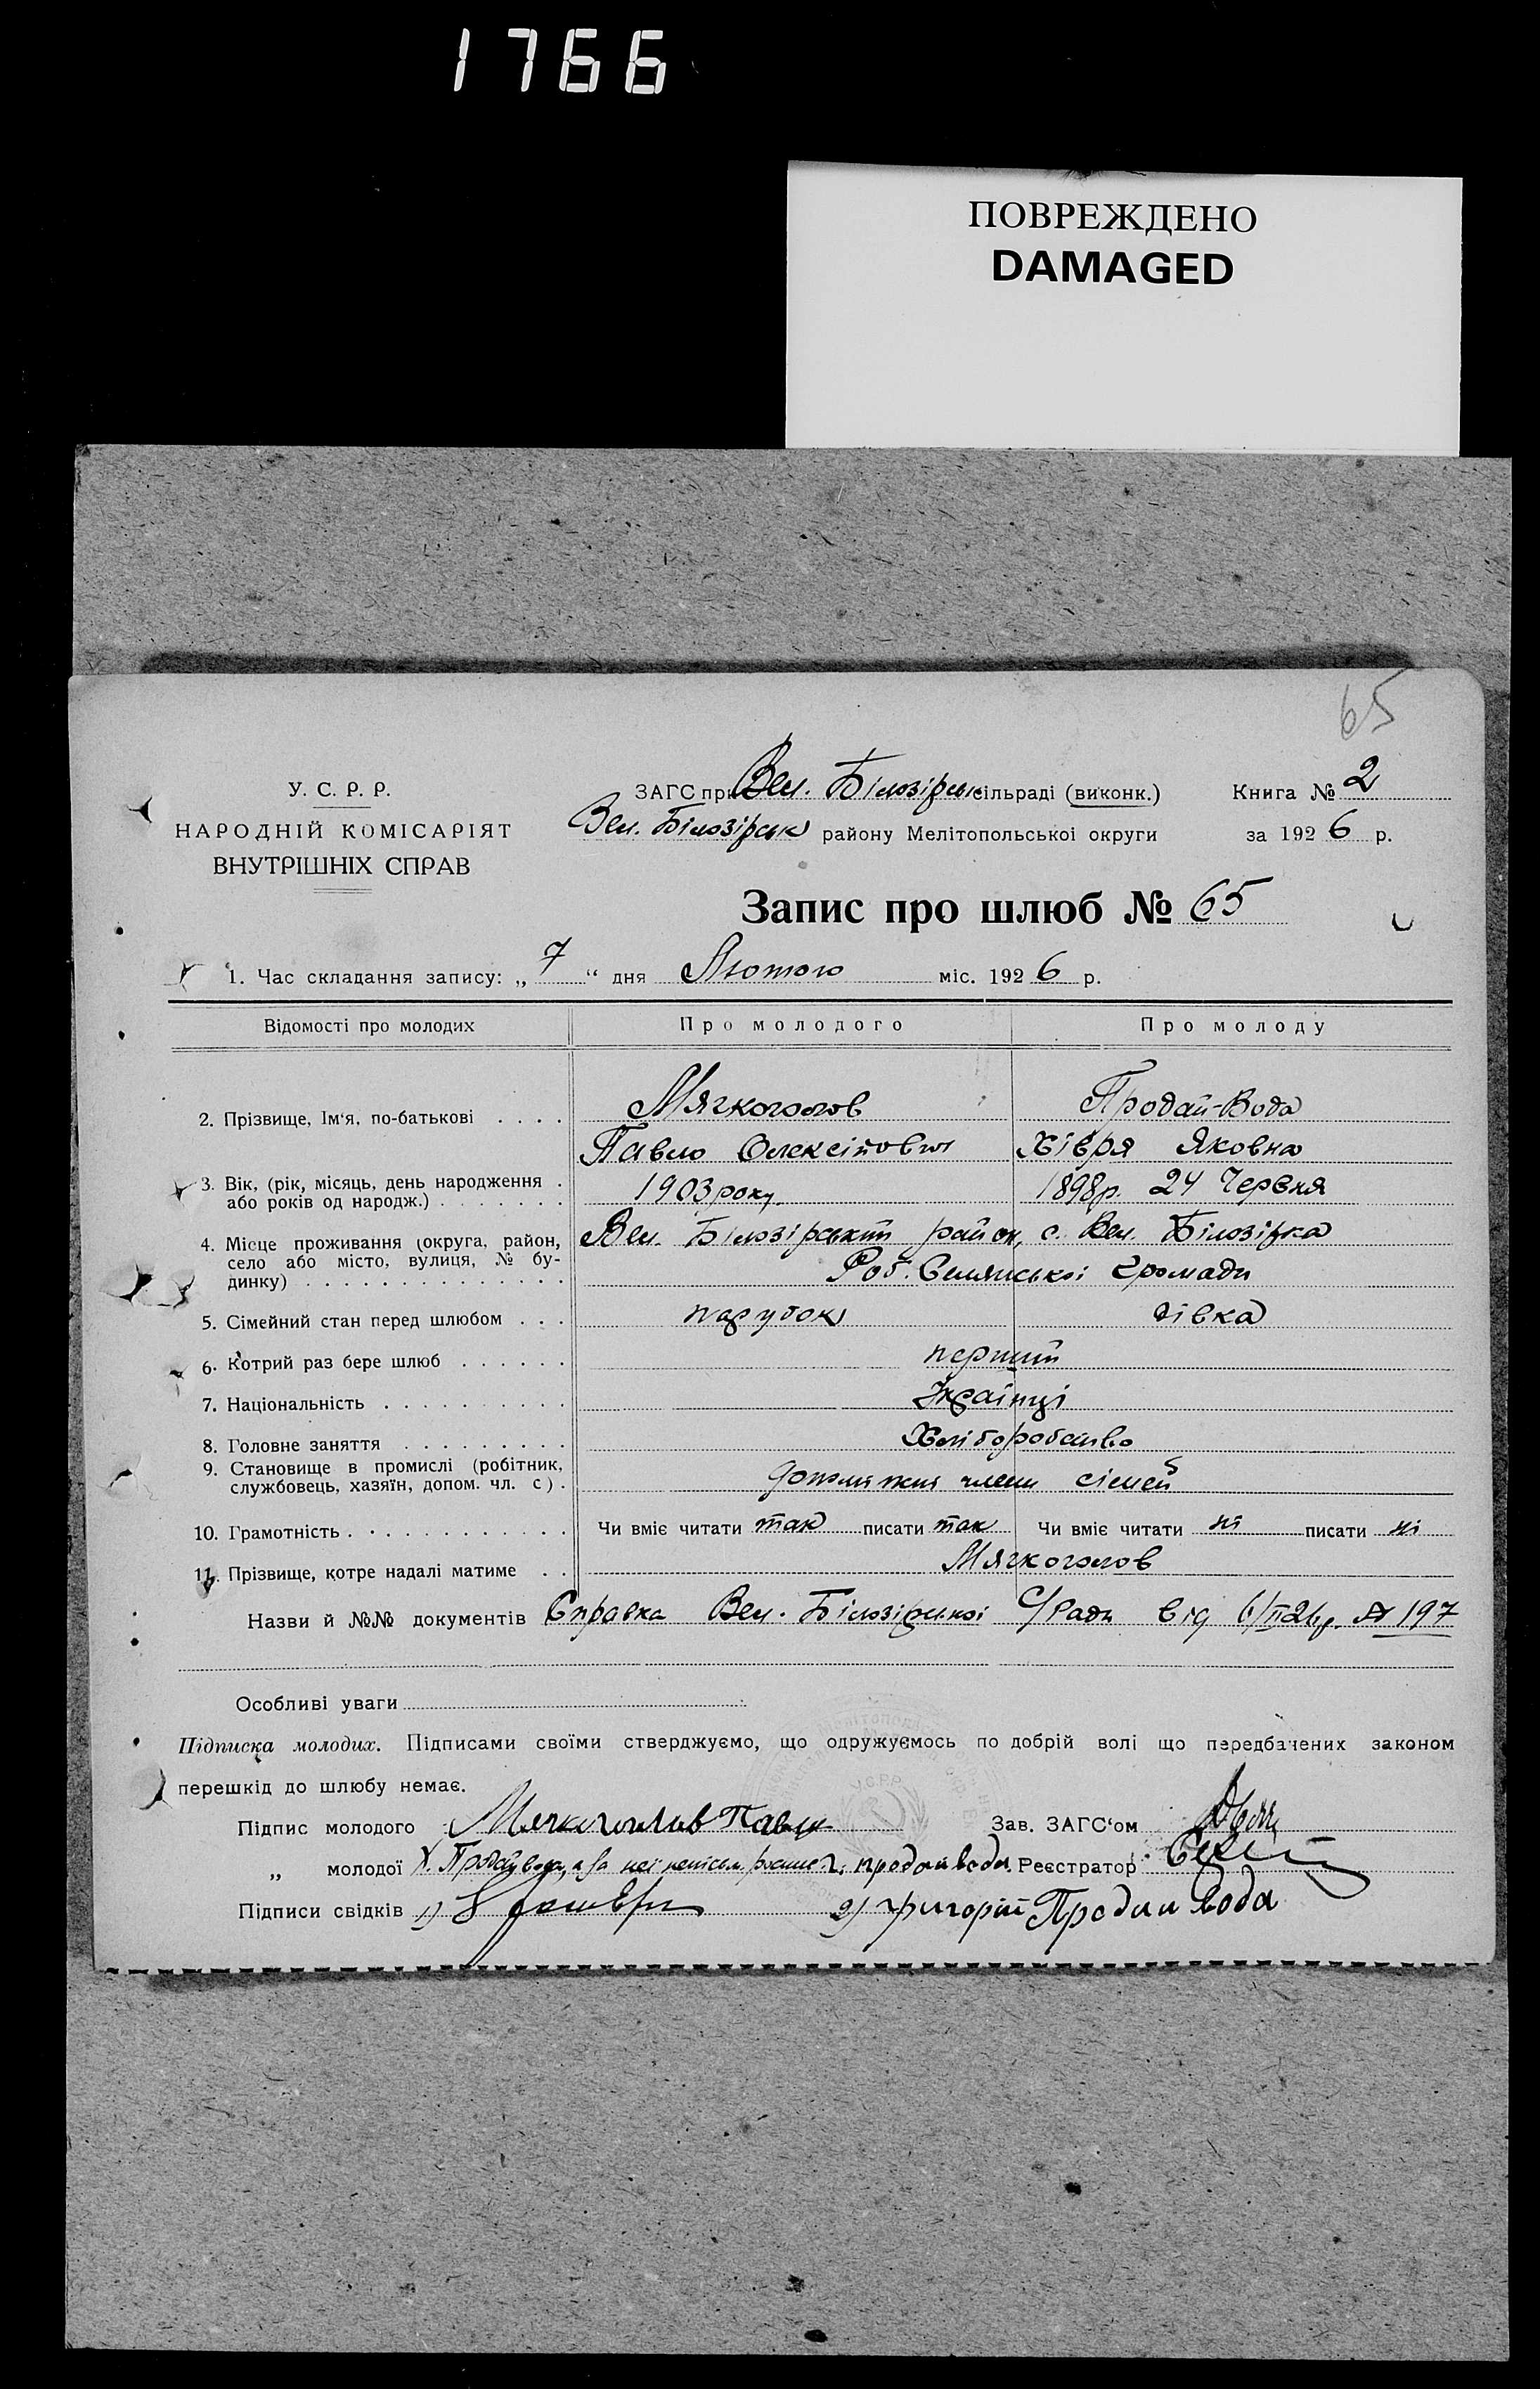 1766
ПОВРЕЖДЕНО
DAMAGED
65
У. С. Р. Р.
НАРОДНІЙ КОМІСАРІЯТ
ВНУТРІШНІХ СПРАВ
ЗАГС при Вел. Білозірськ сільраді (виконк.)
Вел. Білозірськ району Мелітопольської округи
Книга № 2
за 1926 р.
Запис про шлюб № 65
1. Час складання запису: „ 7 “ дня Лютого міс. 1926 р.
Відомості про молодих Про молодого Про молоду
2. Прізвище, Ім‘я, по-батькові . . . . Мягкоголов Продай-Вода
Павло Олексійович Хівря Яковна
3. Вік, (рік, місяць, день народження . або років од народж.) . . . . . . . 1903 року 1898 р. 24 Червня
4. Місце проживання (округа, район, Вел. Білозірський район, с. Вел. Білозірка
село або місто, вулиця, № бу-
динку) . . . . . . . . . . . . . . Роб. Селянської громади
5. Сімейний стан перед шлюбом . . . парубок дівка
6. Котрий раз бере шлюб . . . . . . перший
7. Національність . . . . . . . . . . Українці
8. Головне заняття . . . . . . . . . Хліборобство
9. Становище в промислі (робітник,
службовець, хазяїн, допом. чл. с) . члени сімей
10. Грамотність . . . . . . . . . . . . Чи вміє читати так писати так Чи вміє читати ні писати ні
11. Прізвище, котре надалі матиме . . Мягкоголов
Назви й №№ документів Справка Вел. Білозірської С/Ради від 6/II 26 р. № 197
Особливі уваги
Підписка молодих. Підписами своїми стверджуємо, що одружуємось по добрій волі що передбачених законом
перешкід до шлюбу немає.
Підпис молодого Мягкоголов Павло Зав. ЗАГС‘ом
„ молодої Х. Продайвода, а за неї неписьм. Г. продайвода Реєстратор
Підписи свідків 1) 2) григорій Продай вода